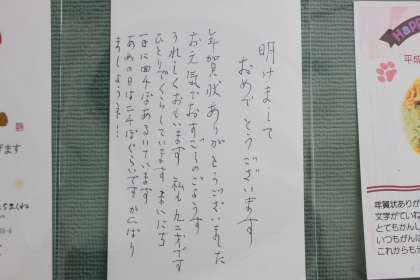 明けまして
おめでとうございます
年賀状ありがとうございました
お元気でおすごしのごようす
うれしくおもいます 私も九二才です
ひとりでくらしています まいにち
一日に四千ぽあるいています
あめの日は二千ぽぐらいですがんばり
ましょうネ!!
Happy
平成
年賀状ありが
文字がていね
とてもかんし
いつもがんば
これからも元
げます